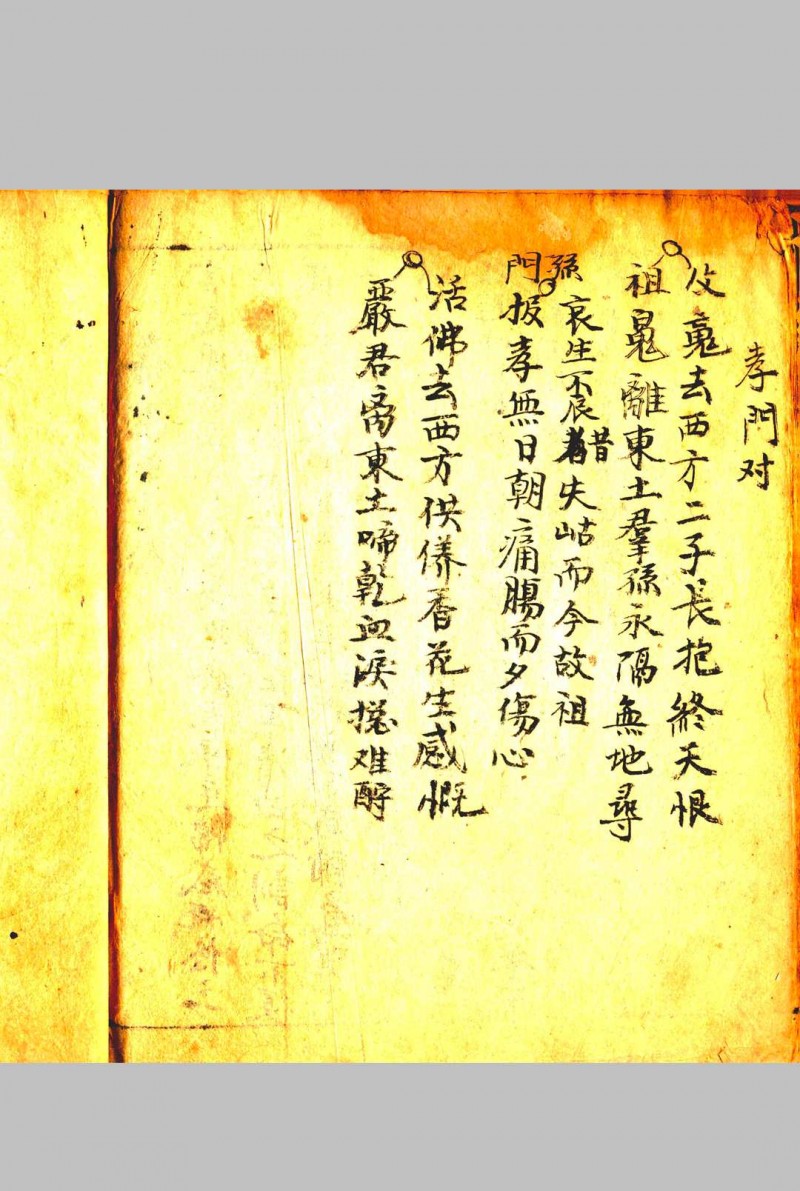 孝門对
父䰟去西方二子長抱終天恨
祖䰟離東土羣孫永隔無地尋
孫哀生不辰昔失岵而今故祖
門报孝無日朝痛腸而夕傷心
活佛去西方供侍香花生感慨
嚴君离東土啼乾血淚揔难酧